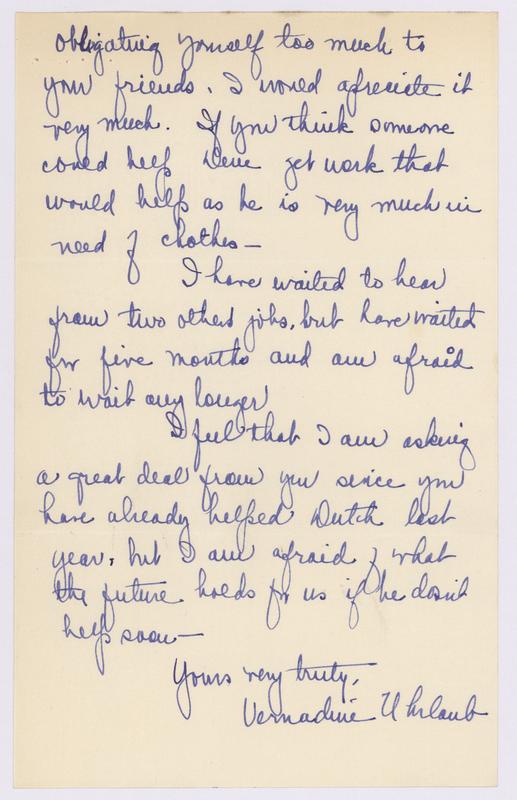 obligating yourself too much to
your friends. I would afreciate it
very much. If you think someone
could help Dene get work that
would help as he is very much in
need of clothes—
I have waited to hear
from two other jobs, but have waited
for five months and am afraid
to wait any longer
I feel that I am asking
a great deal from you since you
have already helped Dutch last
year, but I am afraid of what
the future holds for us if he dosn't
help soon—
Yours very truly,
Vernadine Uhrlaub